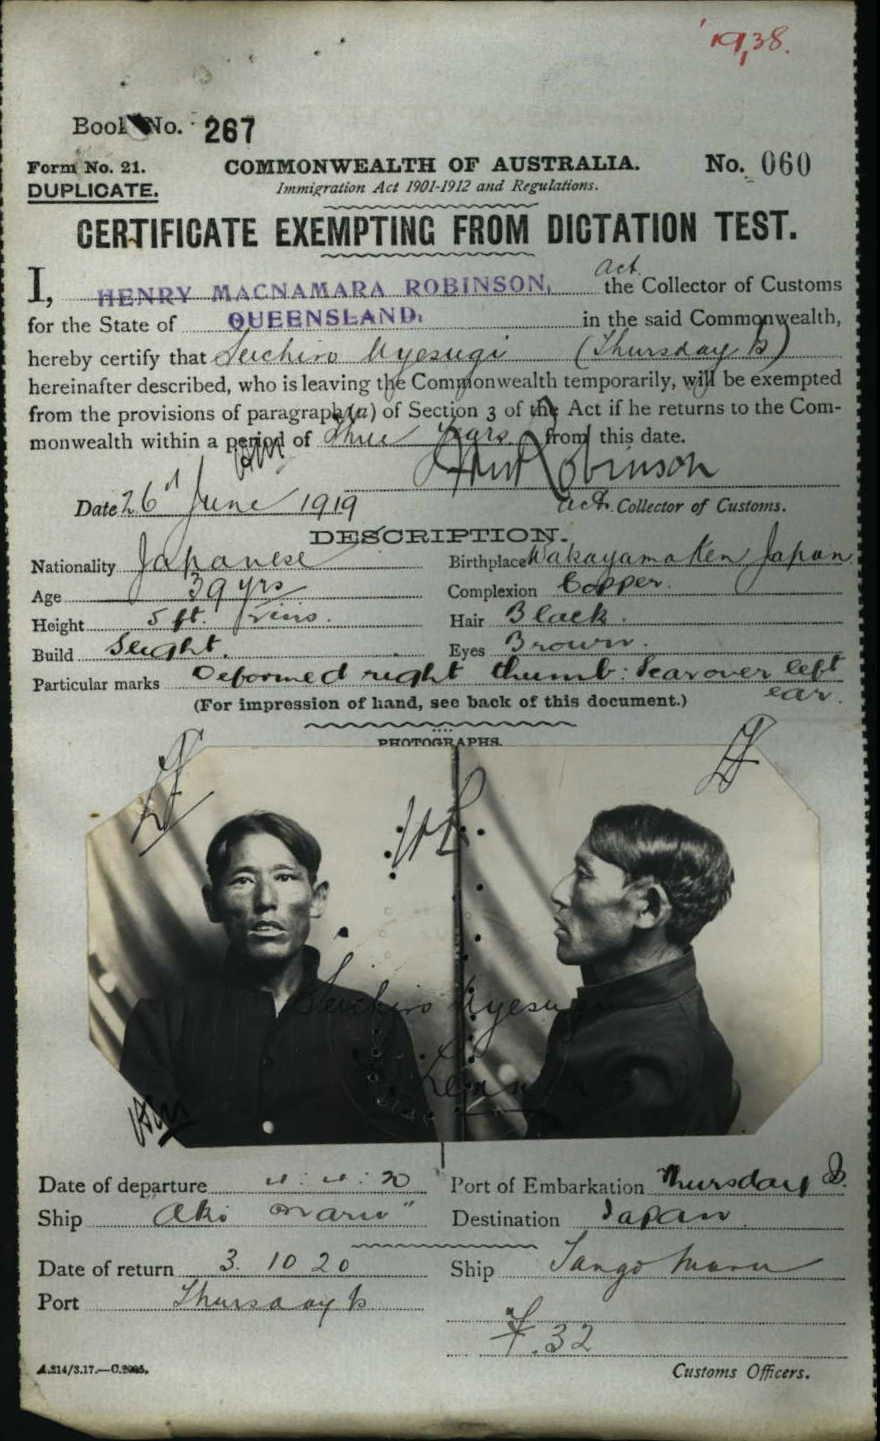 1938.
Book No. 267
Form No. 21. COMMONWEALTH OF AUSTRALIA. No. 060
DUPLICATE. Immigration Act 1901-1912 and Regulations.
CERTIFICATE EXEMPTING FROM DICTATION TEST.
act.
I, HENRY MACNAMARA ROBINSON, the Collector of Customs
for the State of QUEENSLAND, in the said Commonwealth,
hereby certify that Seichiro Uyesugi (Thursday Is)
hereinafter described, who is leaving the Commonwealth temporarily, will be exempted
from the provisions of paragraph (a) of Section 3 of the Act if he returns to the Com-
monwealth within a period of three years from this date.
Robinson
Date 26th June 1919 act. Collector of Customs.
DESCRIPTION.
Nationality Japanese Birthplace Wakayama Ken Japan
Age 39 yrs Complexion Copper.
Height 5 ft. ins. Hair Black.
Build Slight. Eyes Brown.
Particular marks Deformed right thumb: Scar over left
ear.
(For impression of hand, see back of this document.)
PHOTOGRAPHS.
Seichiro Uyesugi
Date of departure 20 Port of Embarkation Thursday Is.
Ship "Aki Maru" Destination Japan.
Date of return 3. 10 20 Ship Tango Maru
Port Thursday Is
F. 32
A.214/3.17.—C.2995. Customs Officers.